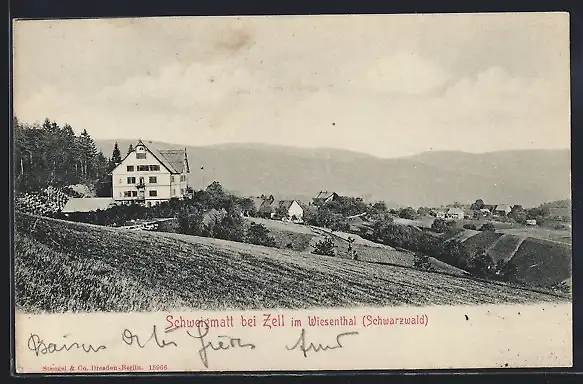 Schweigmatt bei Zell im Wiesenthal (Schwarzwald)
Baisers
Stengel & Co. Dresden-Berlin. 15966